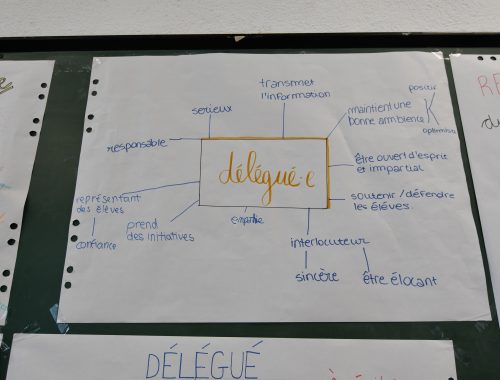 transmet
l'information
serieux
maintient une
bonne ambience
positif
optimiste
responsable
délégué·e
être ouvert d'esprit
et impartial
représentant
des élèves
confiance
prend
des initiatives
empathie
soutenir / défendre
les élèves
interlocuteur
sincère
être élocant
DÉLÉGUÉ